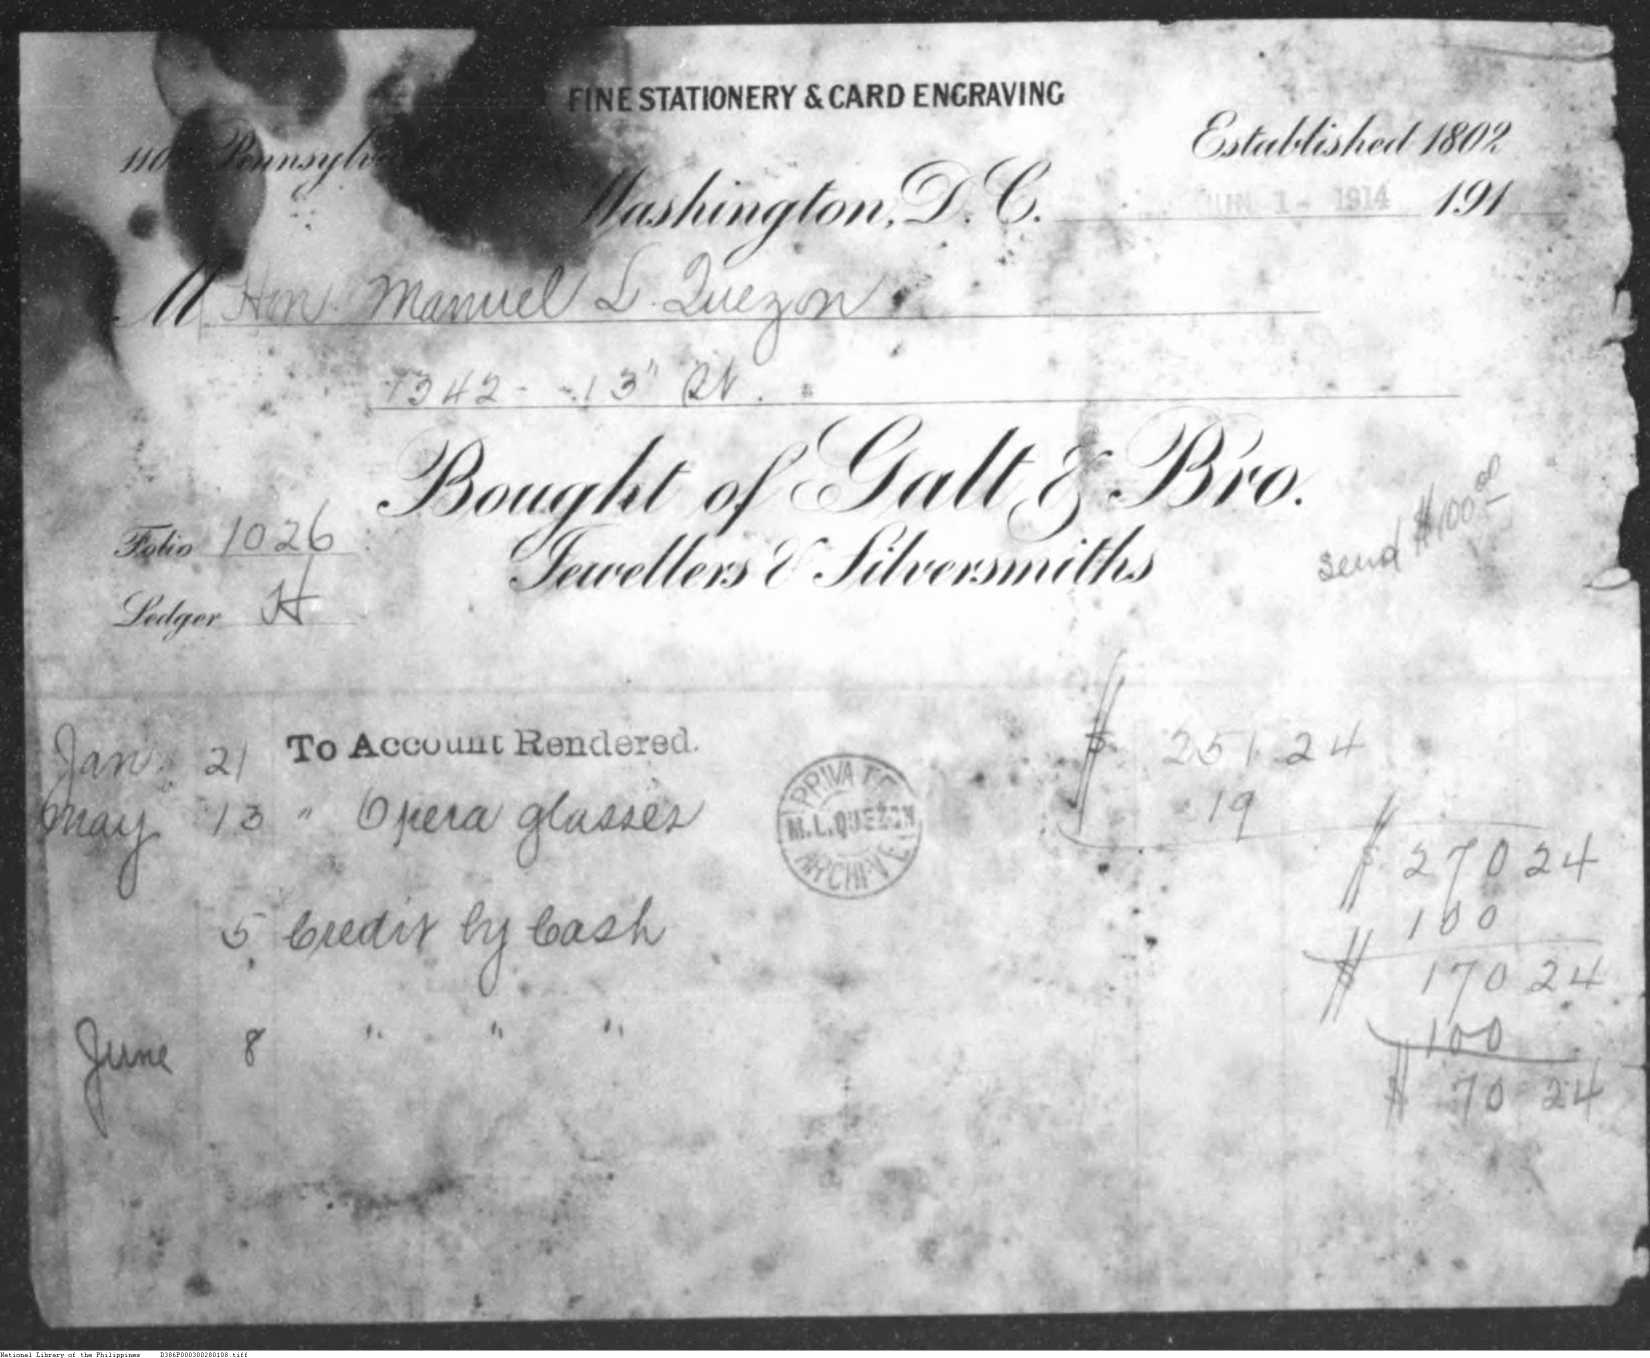 FINE STATIONERY & CARD ENGRAVING
Established 1802
Washington, D.C. 1 - 1914 191
M Hon. Manuel L. Quezon
1342 - 13" St.
Bought of Galt & Bro.
Jewellers & Silversmiths
send $100.00
Folio 1026
Ledger H
Jan. 21 To Account Rendered. $ 251 24
May 13 " Opera glasses 19
$ 270 24
5 Credit by Cash 100
$ 170 24
June 8 " " " 100
$ 70 24
PRIVATE
M.L.QUEZON
ARCHIVE
National Library of the Philippines D386P000300280108.tiff